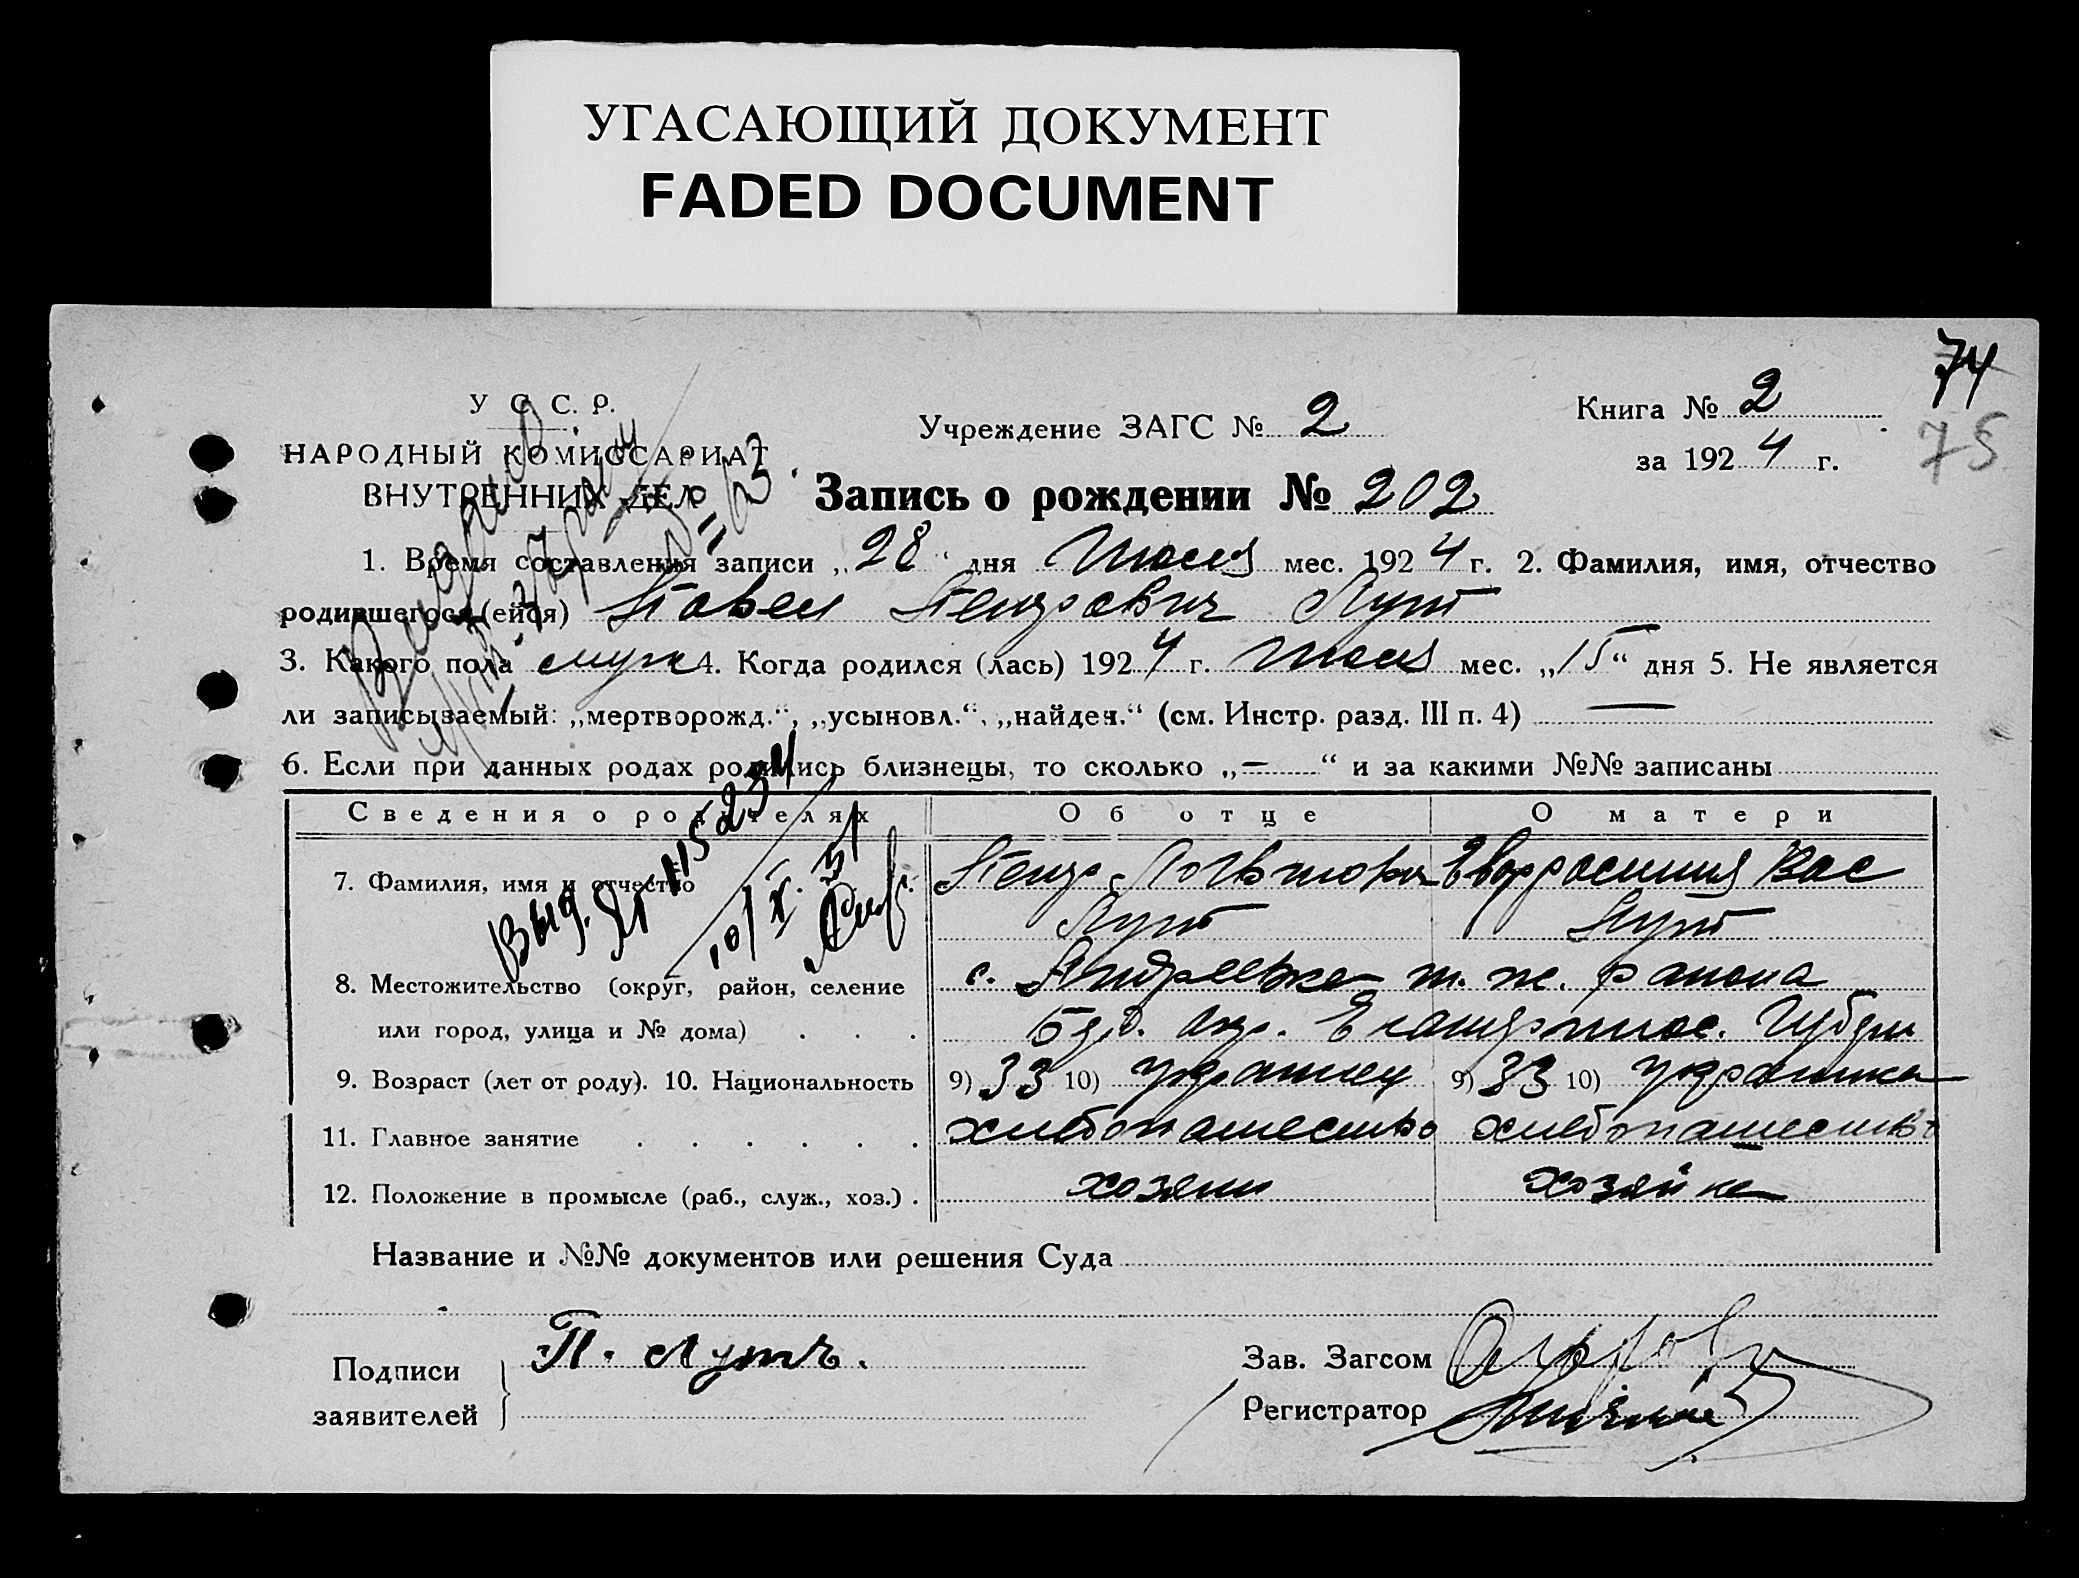 УГАСАЮЩИЙ ДОКУМЕНТ
FADED DOCUMENT
74
75
У С. С. Р.
НАРОДНЫЙ КОМИССАРИАТ
ВНУТРЕННИХ ДЕЛ
Учреждение ЗАГС № 2
Книга № 2
за 1924 г.
Запись о рождении № 202
1. Время составления записи „28“ дня Июля мес. 1924 г. 2. Фамилия, имя, отчество
родившегося (ейся) Павел Петрович Лут
3. Какого пола муж 4. Когда родился (лась) 1924 г. Июля мес. „15“ дня 5. Не является
ли записываемый: „мертворожд.“, „усыновл.“, „найден.“ (см. Инстр. разд. III п. 4) —
6. Если при данных родах родились близнецы, то сколько „—“ и за какими №№ записаны
Сведения о родителях Об отце О матери
7. Фамилия, имя и отчество Петр Вас
Лут Лут
8. Местожительство (округ, район, селение с. Андреевка т. ж. района
или город, улица и № дома) Бед. окр. Екатеринос. Губерн
9. Возраст (лет от роду). 10. Национальность 9) 33 10) украинец 9) 33 10) украинка
11. Главное занятие хлебопашество хлебопашество
12. Положение в промысле (раб., служ., хоз.) хозяин хозяйка
Выд. 115234
10/X 51
Название и №№ документов или решения Суда
Подписи
заявителей
П. Лутъ.
Зав. Загсом
Регистратор